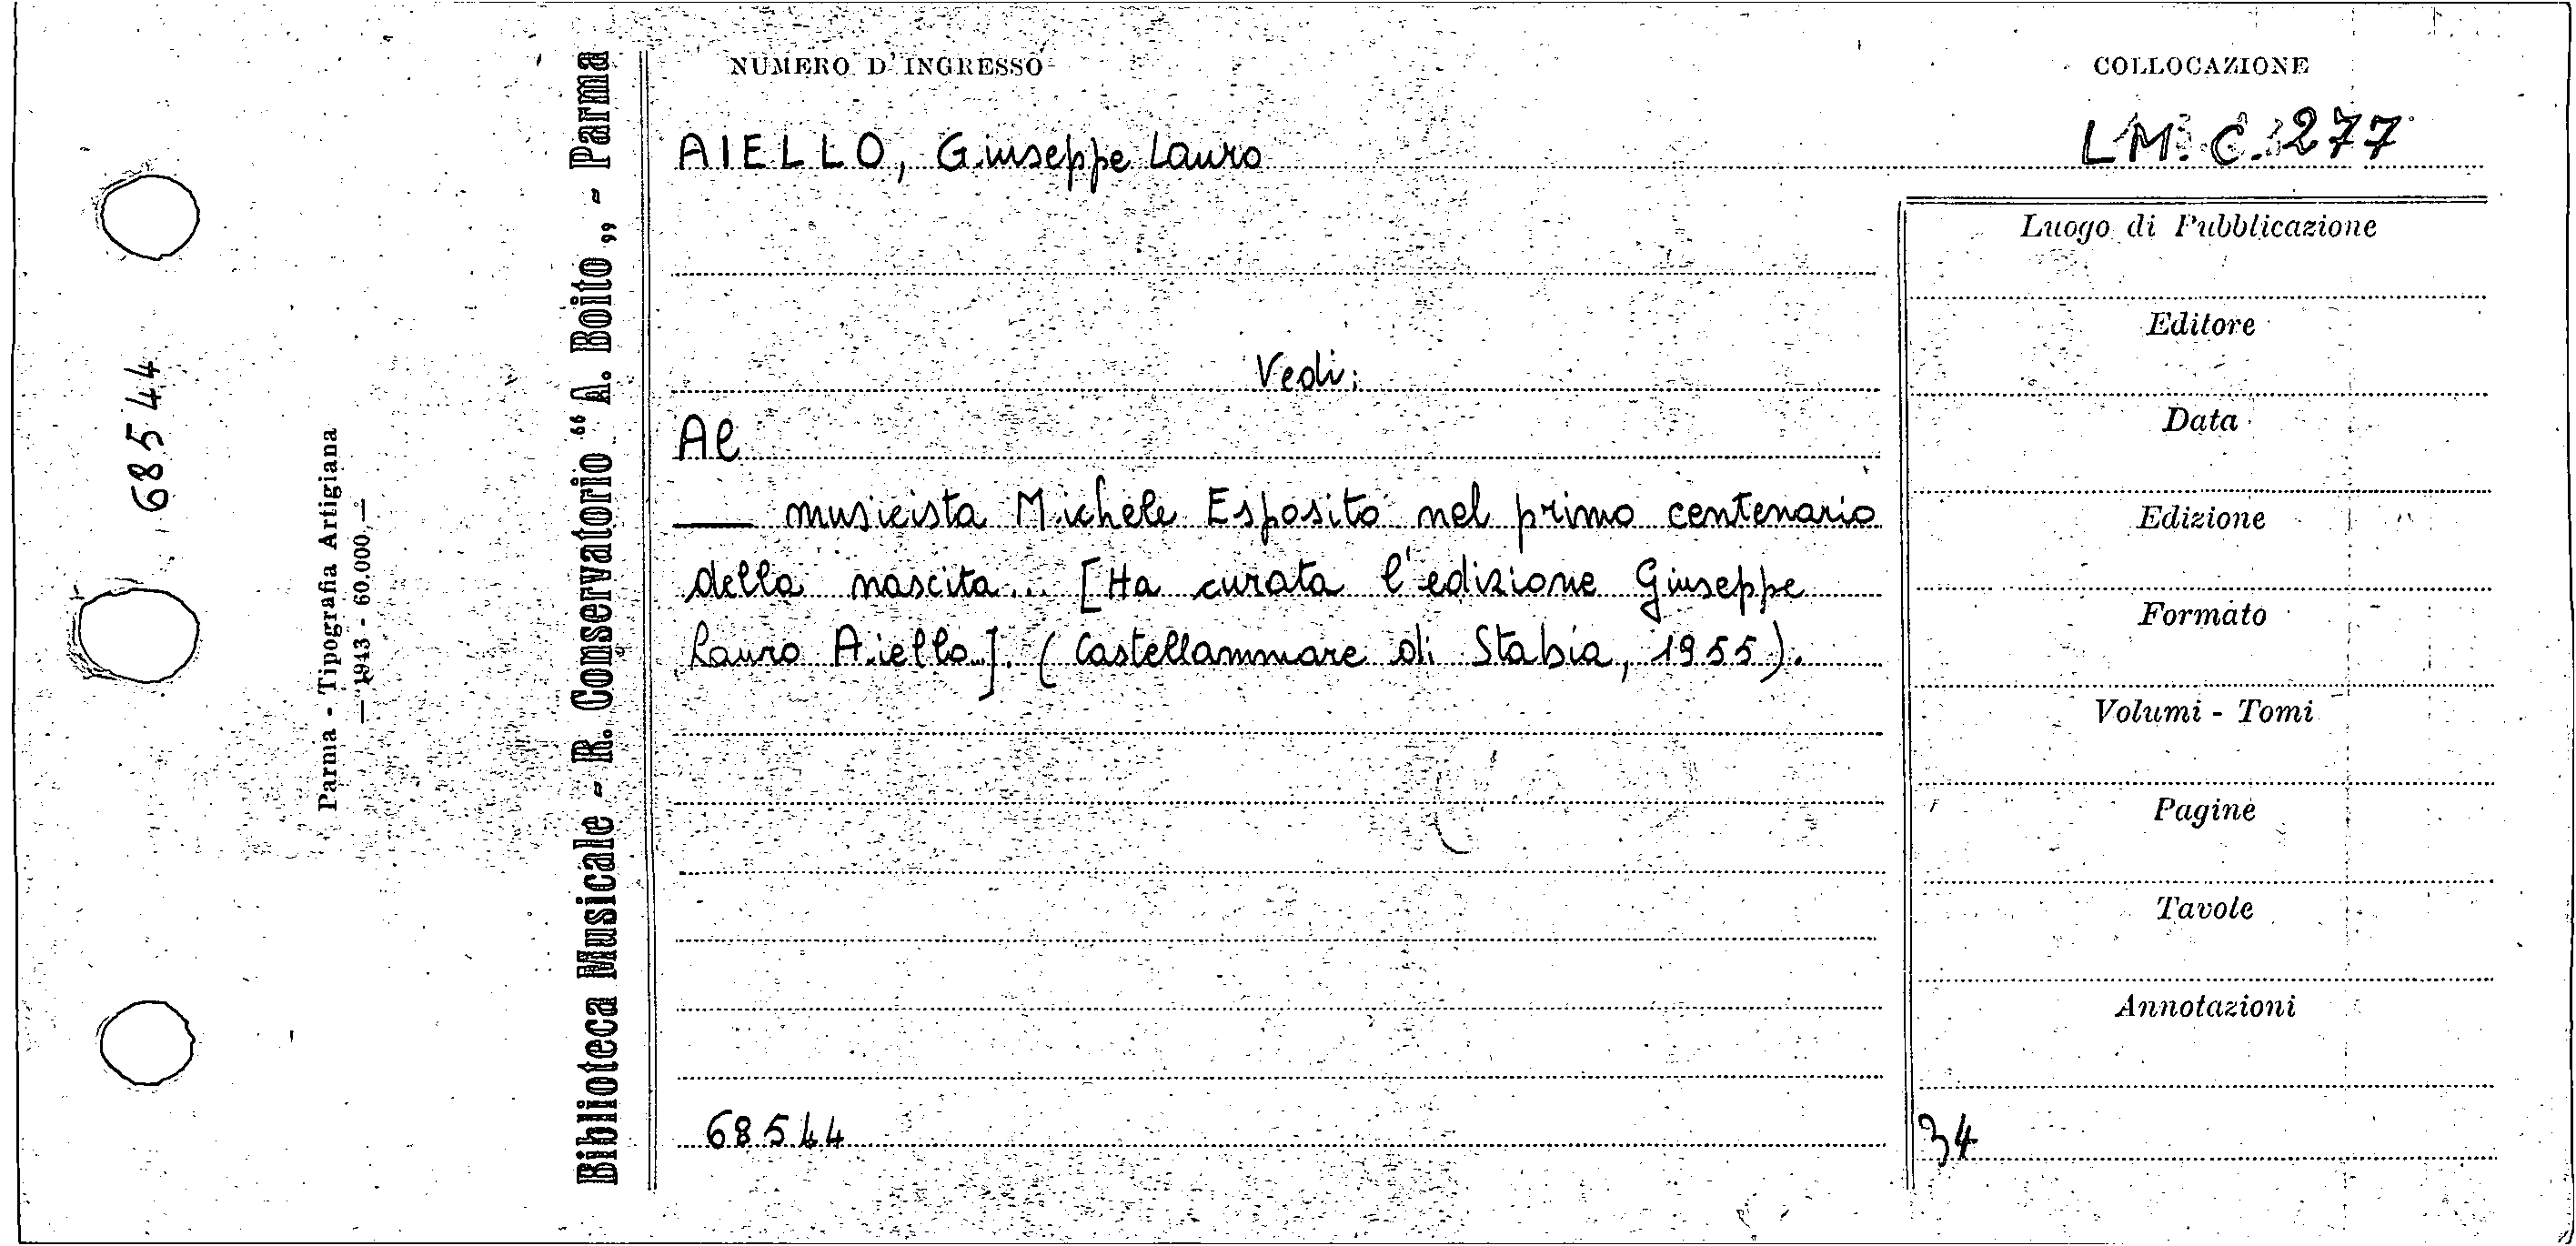 68544
Parma - Tipografia Artigiana
— 1943 - 60.000 —
Biblioteca Musicale - R. Conservatorio “A. Boito„ - Parma
NUMERO D'INGRESSO
COLLOCAZIONE
AIELLO, Giuseppe Lauro
LM. C. 277
Vedi:
Al
— musicista Michele Esposito nel primo centenario
della nascita... [Ha curata l'edizione Giuseppe
Lauro Aiello]. (Castellammare di Stabia, 1955).
68544
Luogo di Pubblicazione
Editore
Data
Edizione
Formato
Volumi - Tomi
Pagine
Tavole
Annotazioni
34